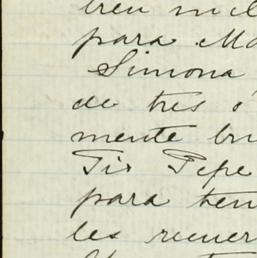 para Ma
Simona
de tres o
mente bu
Tio Pepe
para ten
les recuer